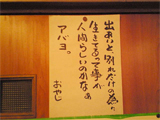 出あいと別れだけの為に
生きてるって事が
人間らしいのかなぁ
アバヨ。
おやじ